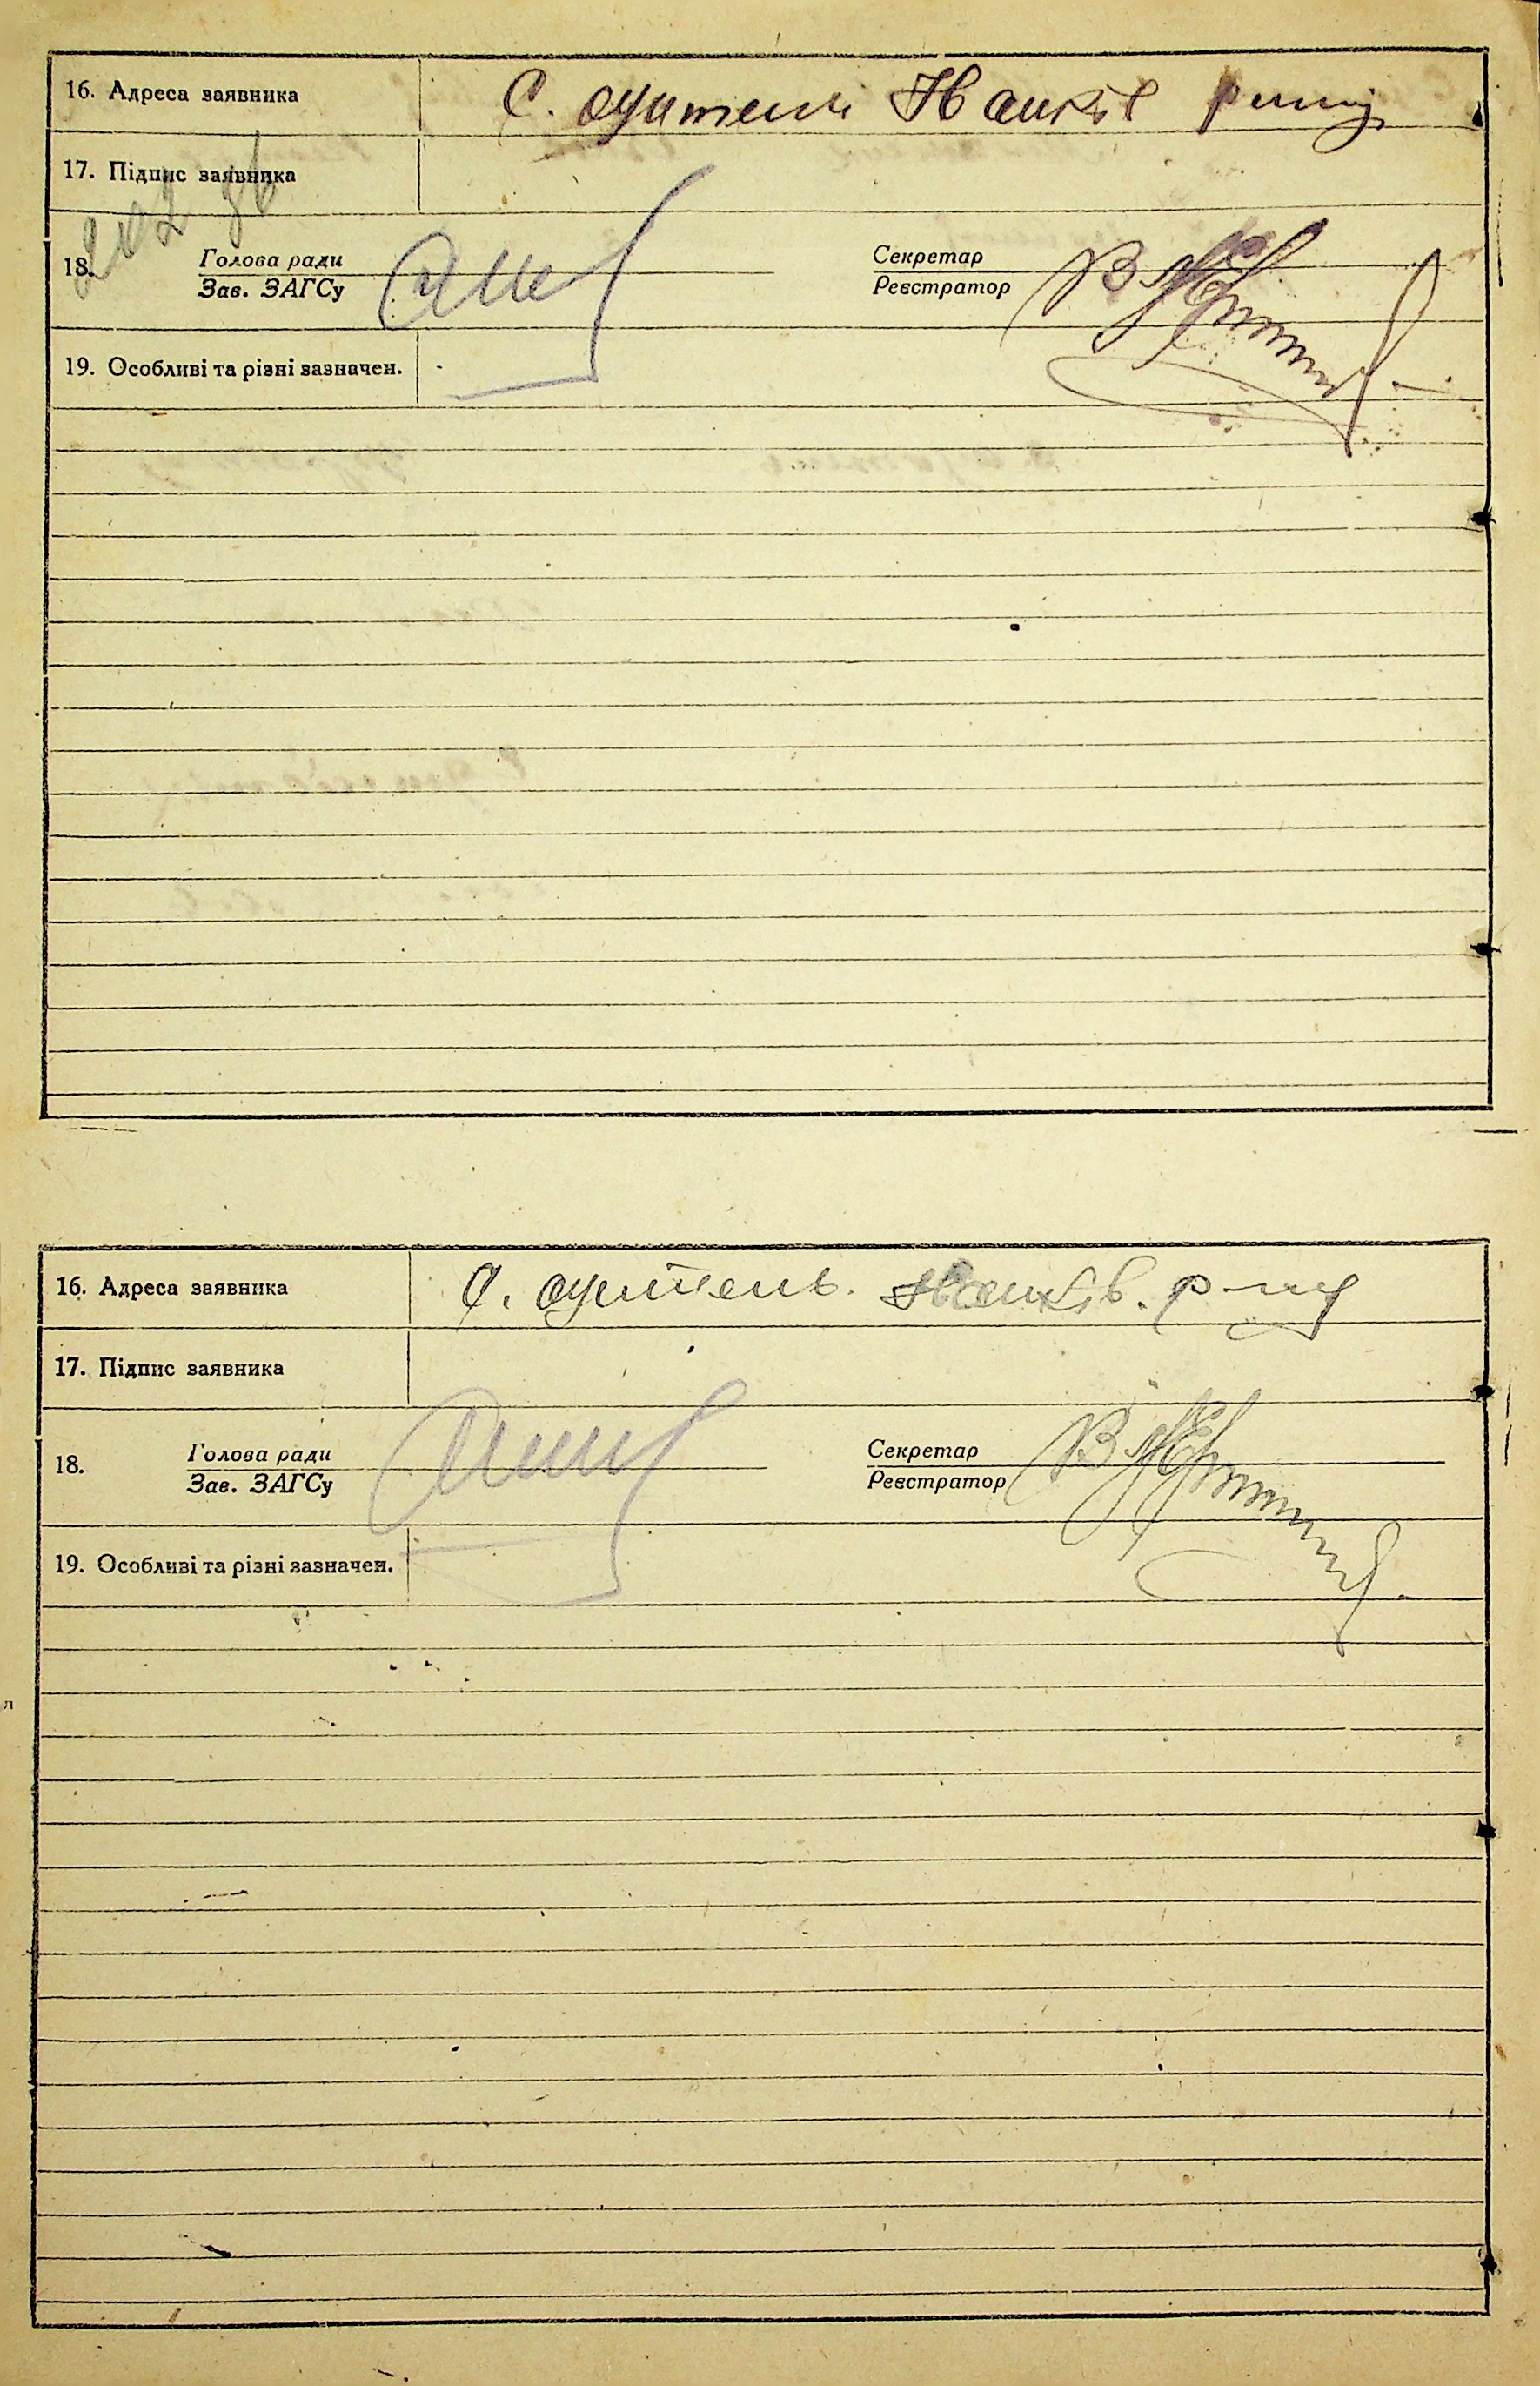 16. Адреса заявника С. Оуитень Іванків р-ну
17. Підпис заявника
18. Голова ради Секретар
Зав. ЗАГСу Реєстратор
19. Особливі та різні зазначен.
16. Адреса заявника С. Оуитень Іванків. р-ну
17. Підпис заявника
18. Голова ради Секретар
Зав. ЗАГСу Реєстратор
19. Особливі та різні зазначен.